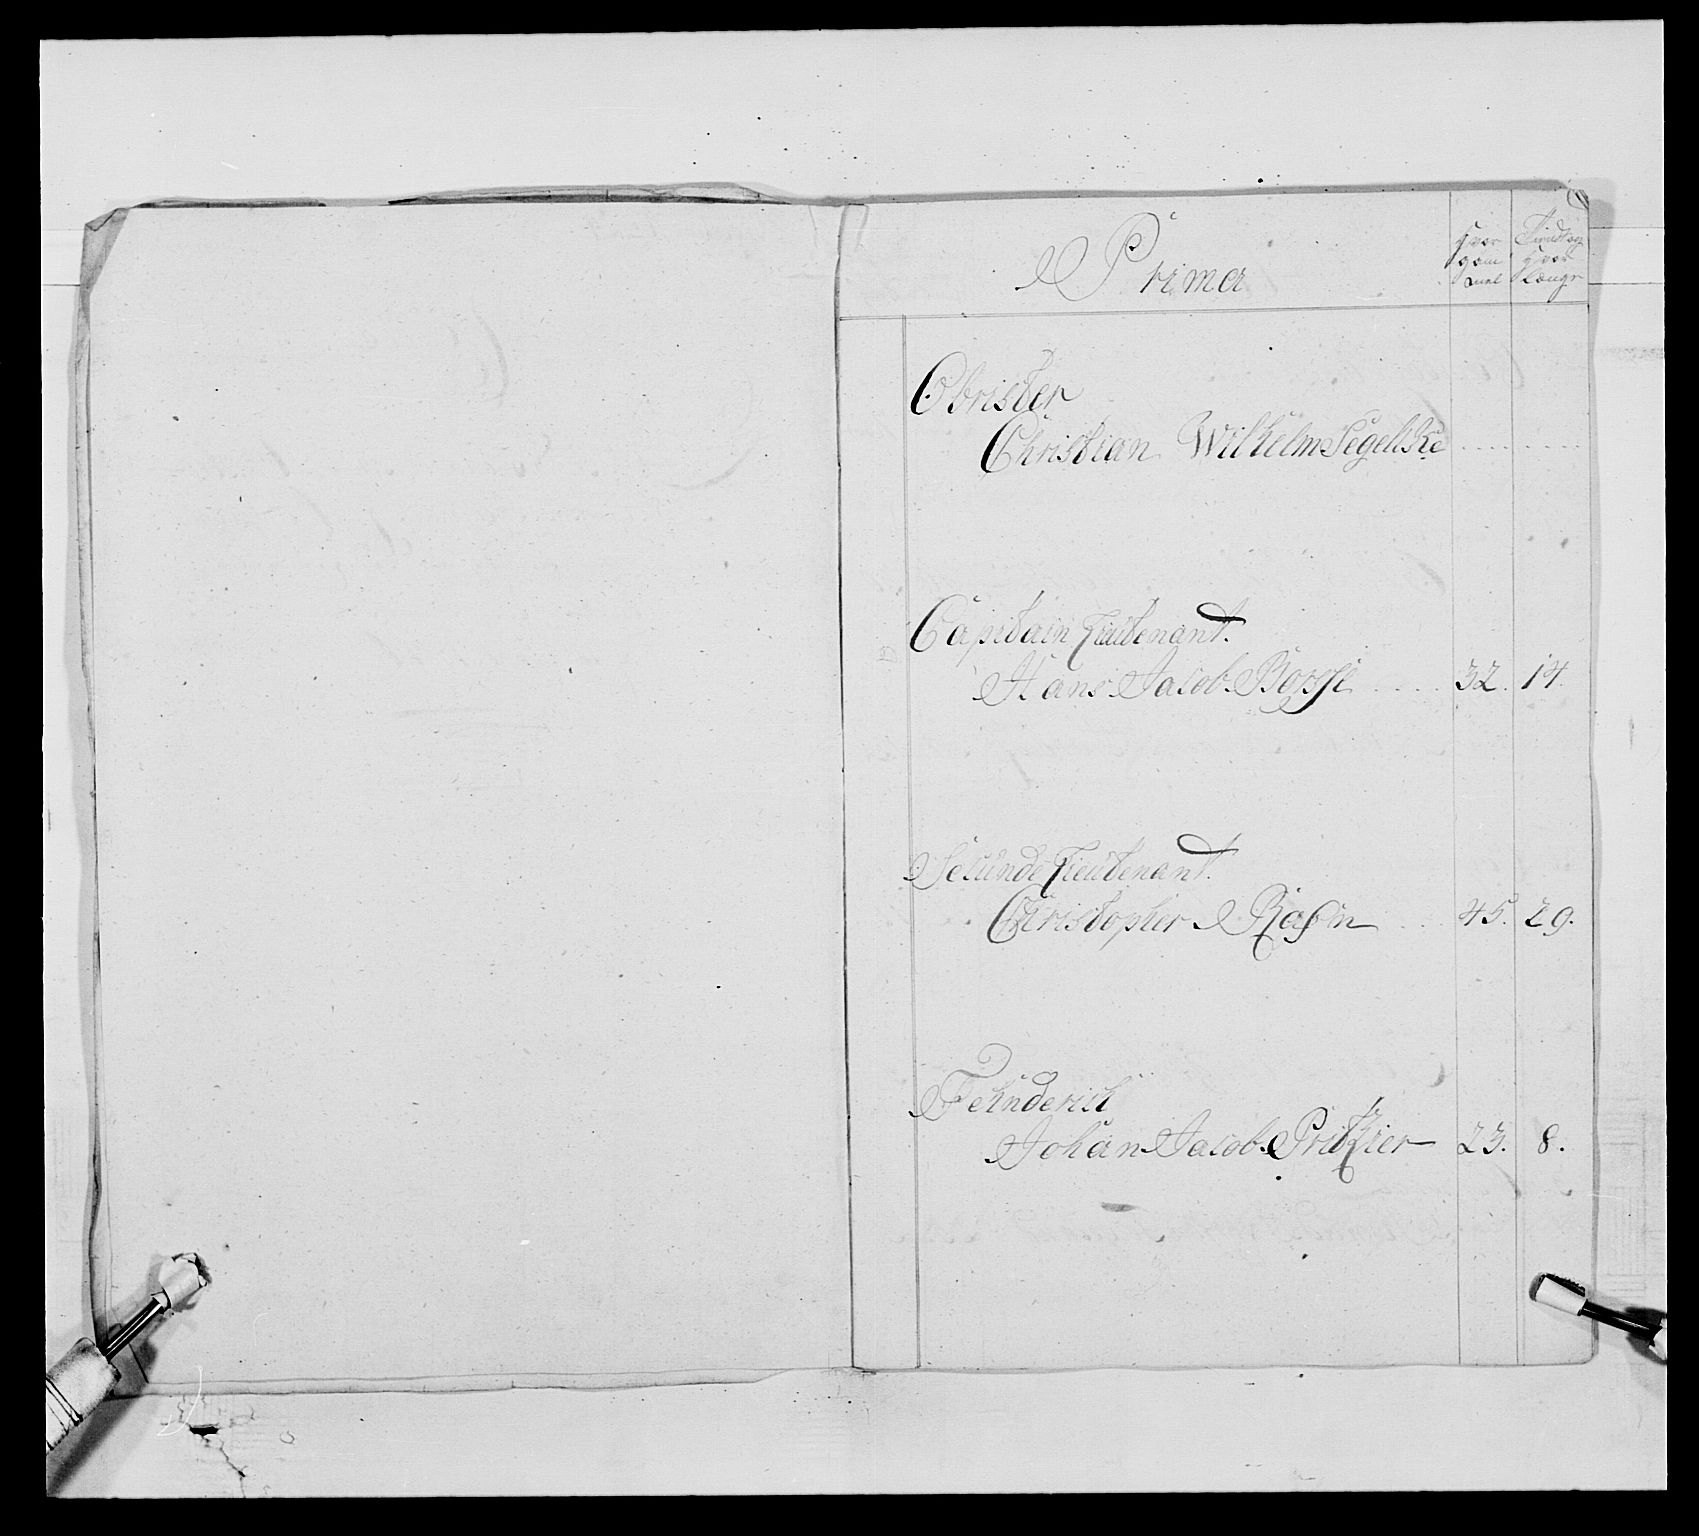 Prima
Hvor gam̄el
Tiendt og Hvor Længe
Obrister
Christian Wilhelm Segelcke . . . . . . . .
Capitain Lieutenant.
Hans Jacob Borse . . . . 32. 14.
Secunde Lieutenant.
Christopher . . 45. 29.
Fehnderich
Johan Jacob Pritzier 23. 8.